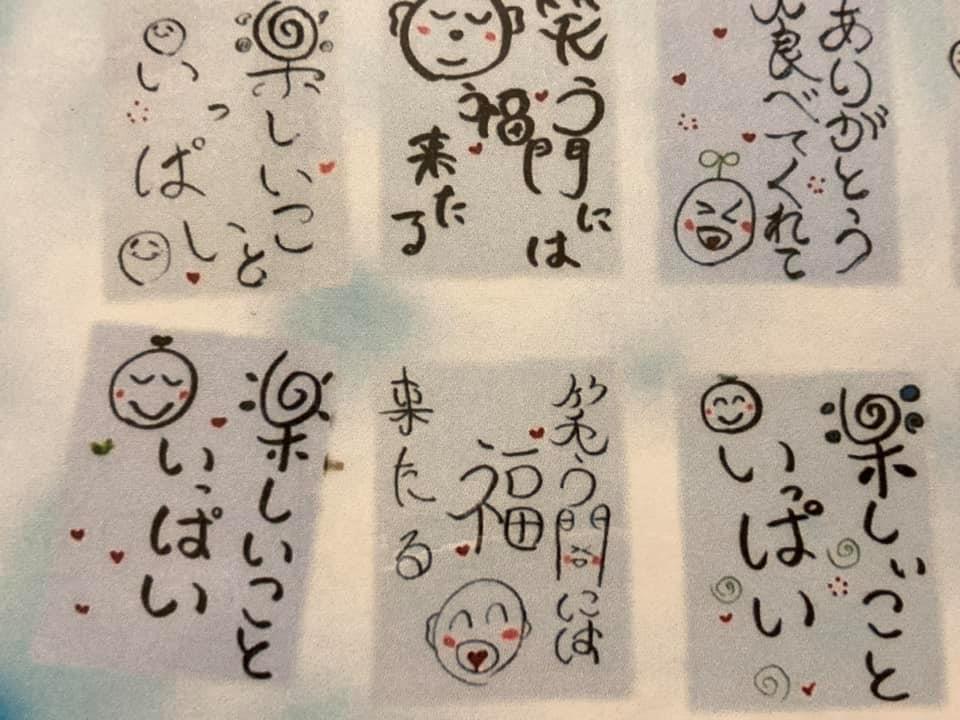 楽しいこと
いっぱい
笑う門には
福
来たる
ありがとう
食べてくれて
楽しいこと
いっぱい
笑う門には
福
来たる
楽しいこと
いっぱい